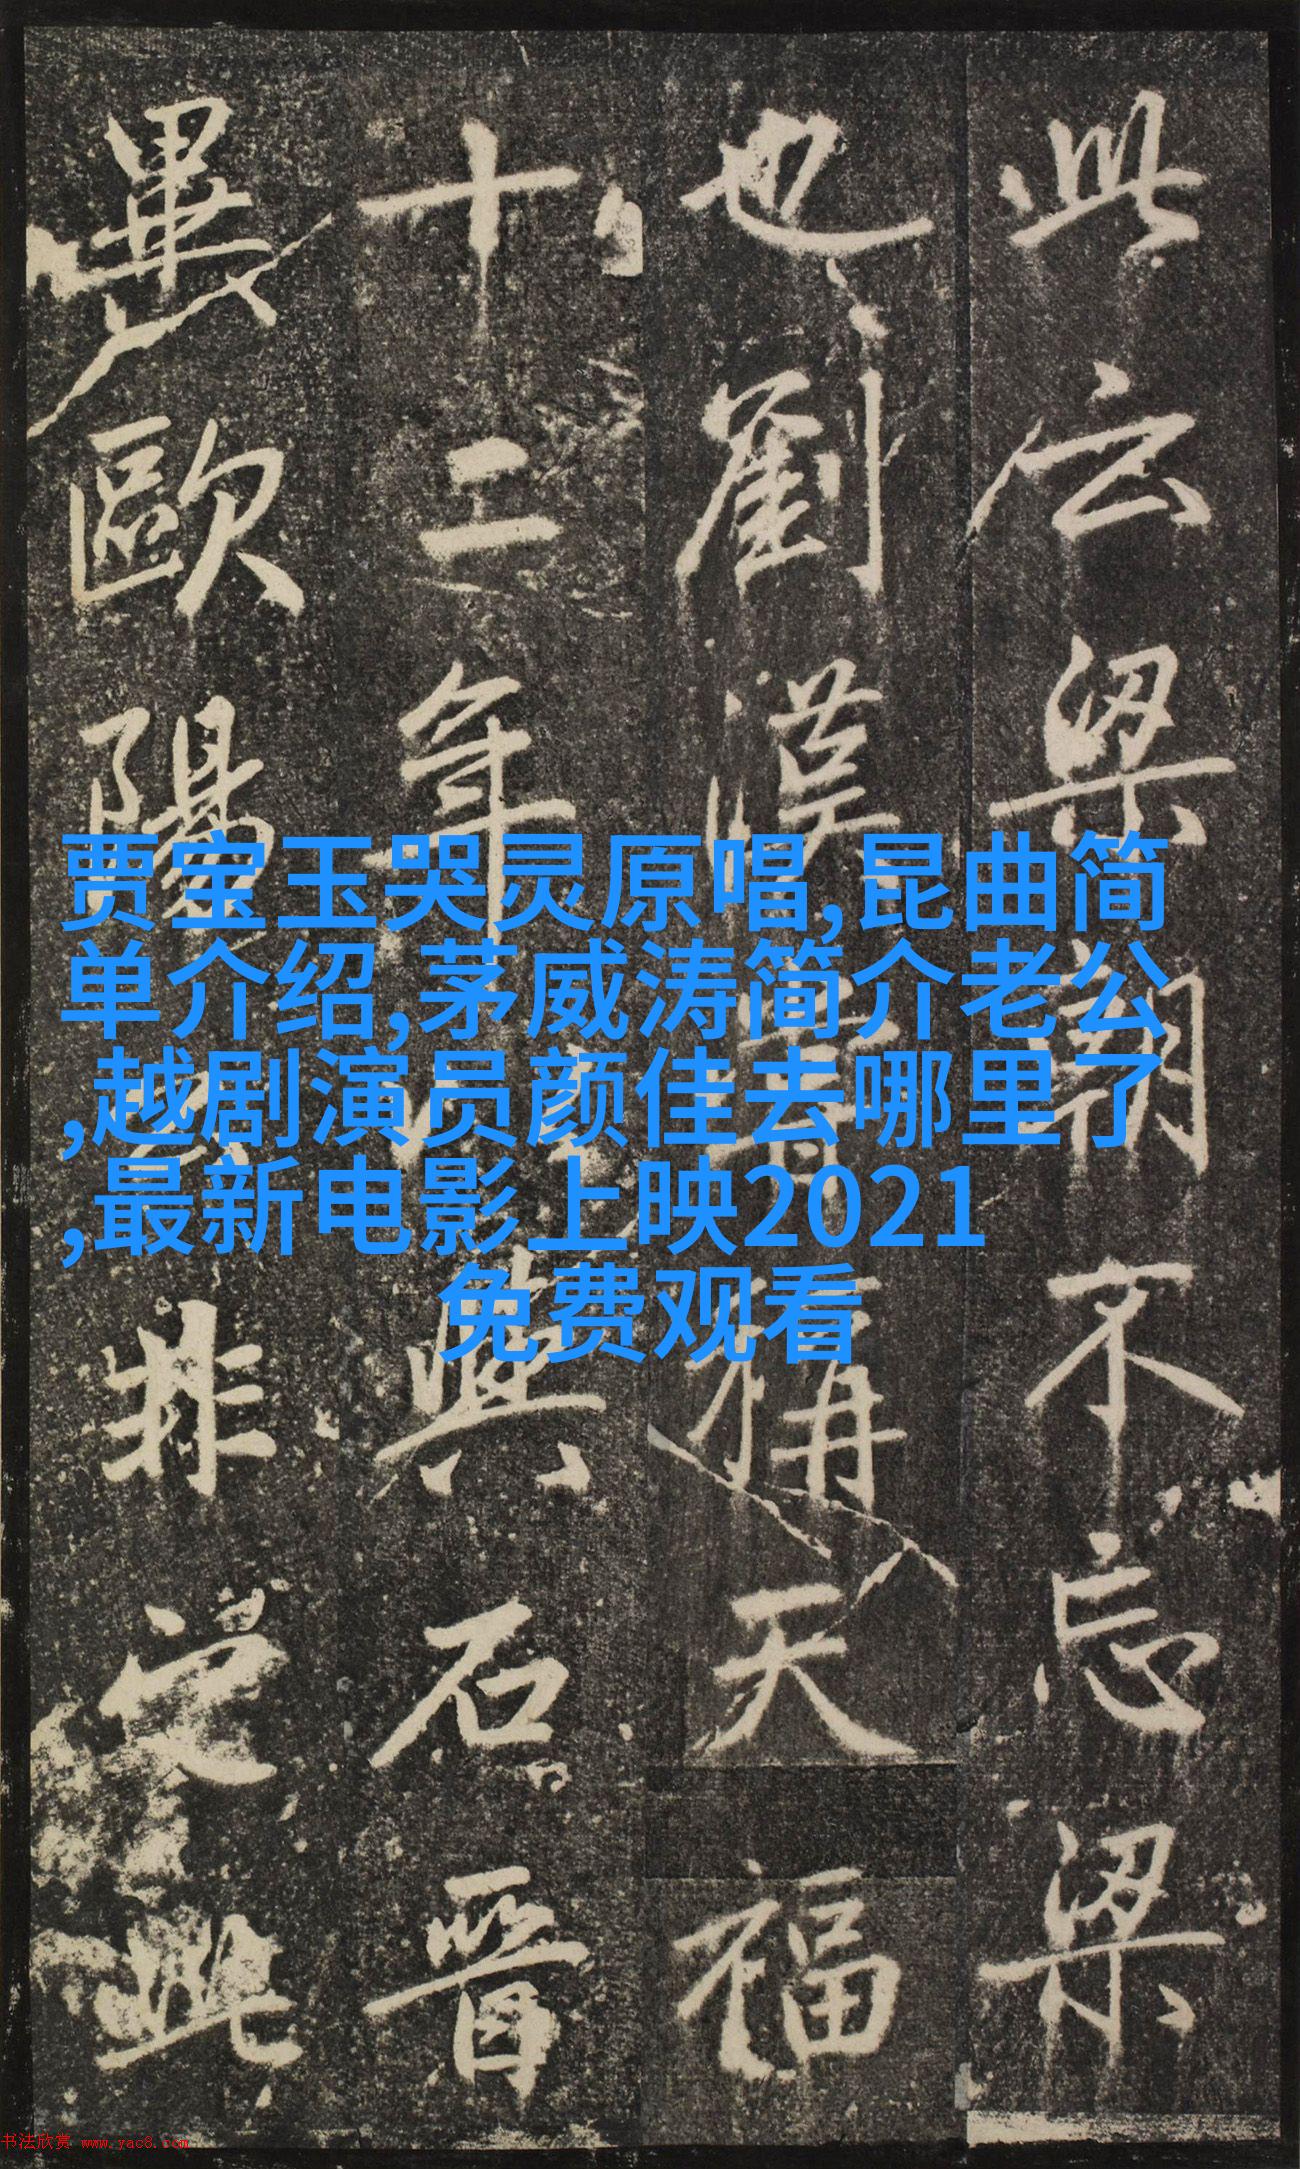 此云梁朝不忘梁
也劉漢稱天福
十二年與石晉
畢歐陽非此
贾宝玉哭灵原唱,昆曲简
单介绍,茅威涛简介老公
,越剧演员颜佳去哪里了
,最新电影上映2021
免费观看
书法欣赏 www.yac8.com